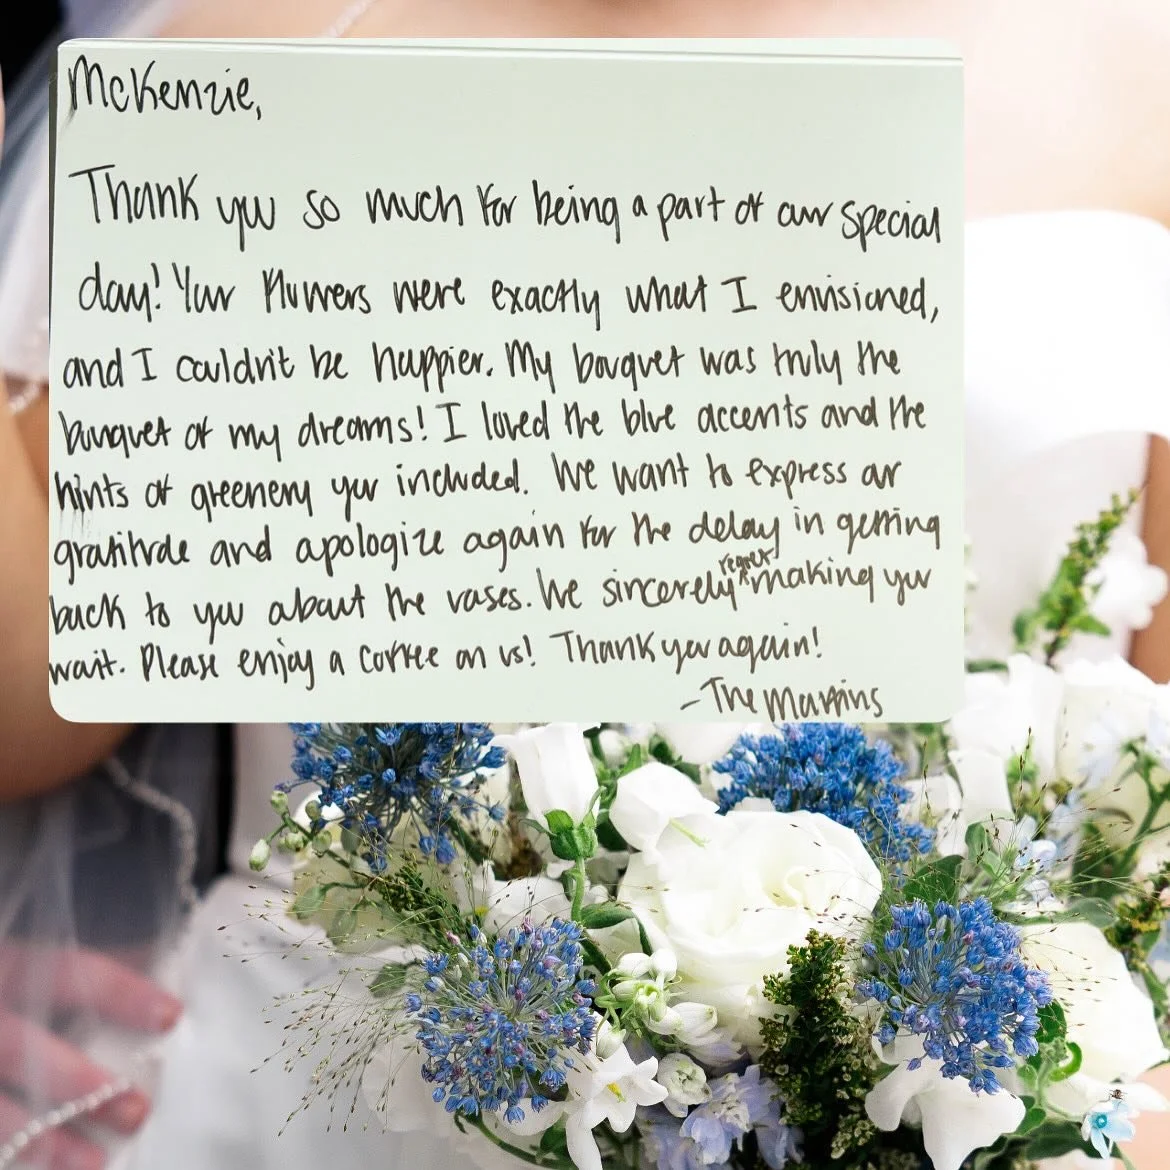 McKenzie,
Thank you so much for being a part of our special
day! Your flowers were exactly what I envisioned,
and I couldn't be happier. My bouquet was truly the
bouquet of my dreams! I loved the blue accents and the
hints of greenery you included. We want to express our
gratitude and apologize again for the delay in getting
back to you about the vases. We sincerely regret making you
wait. Please enjoy a coffee on us! Thank you again!
- The Martins